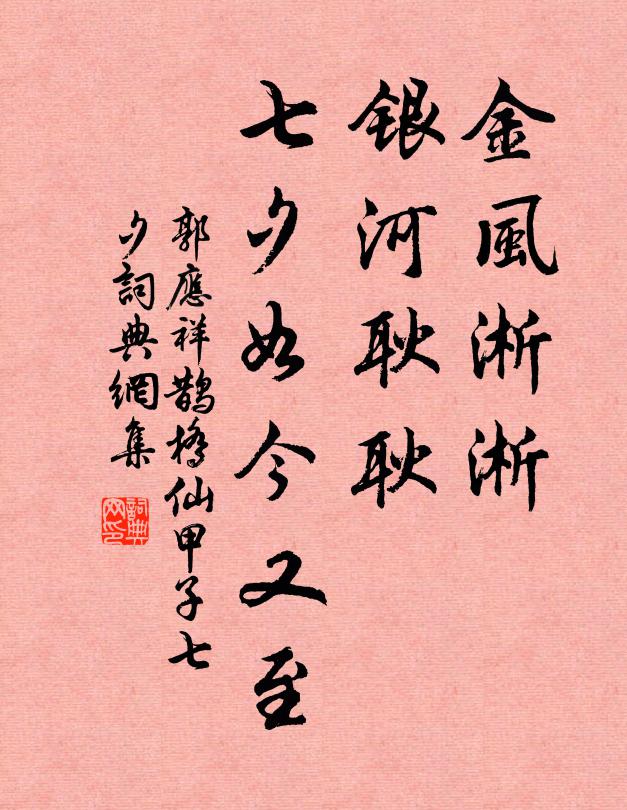 金風淅淅
銀河耿耿
七夕如今又至
郭應祥鵲橋仙甲子七
夕詞典網集
詞典
网印